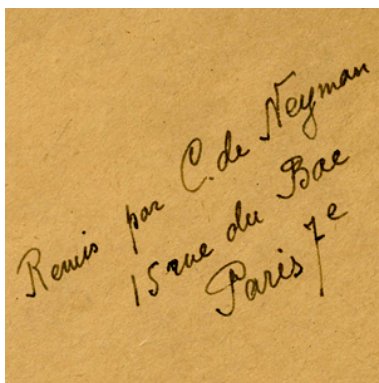 Remis par C. de Neyman
15 rue du Bac
Paris 7e